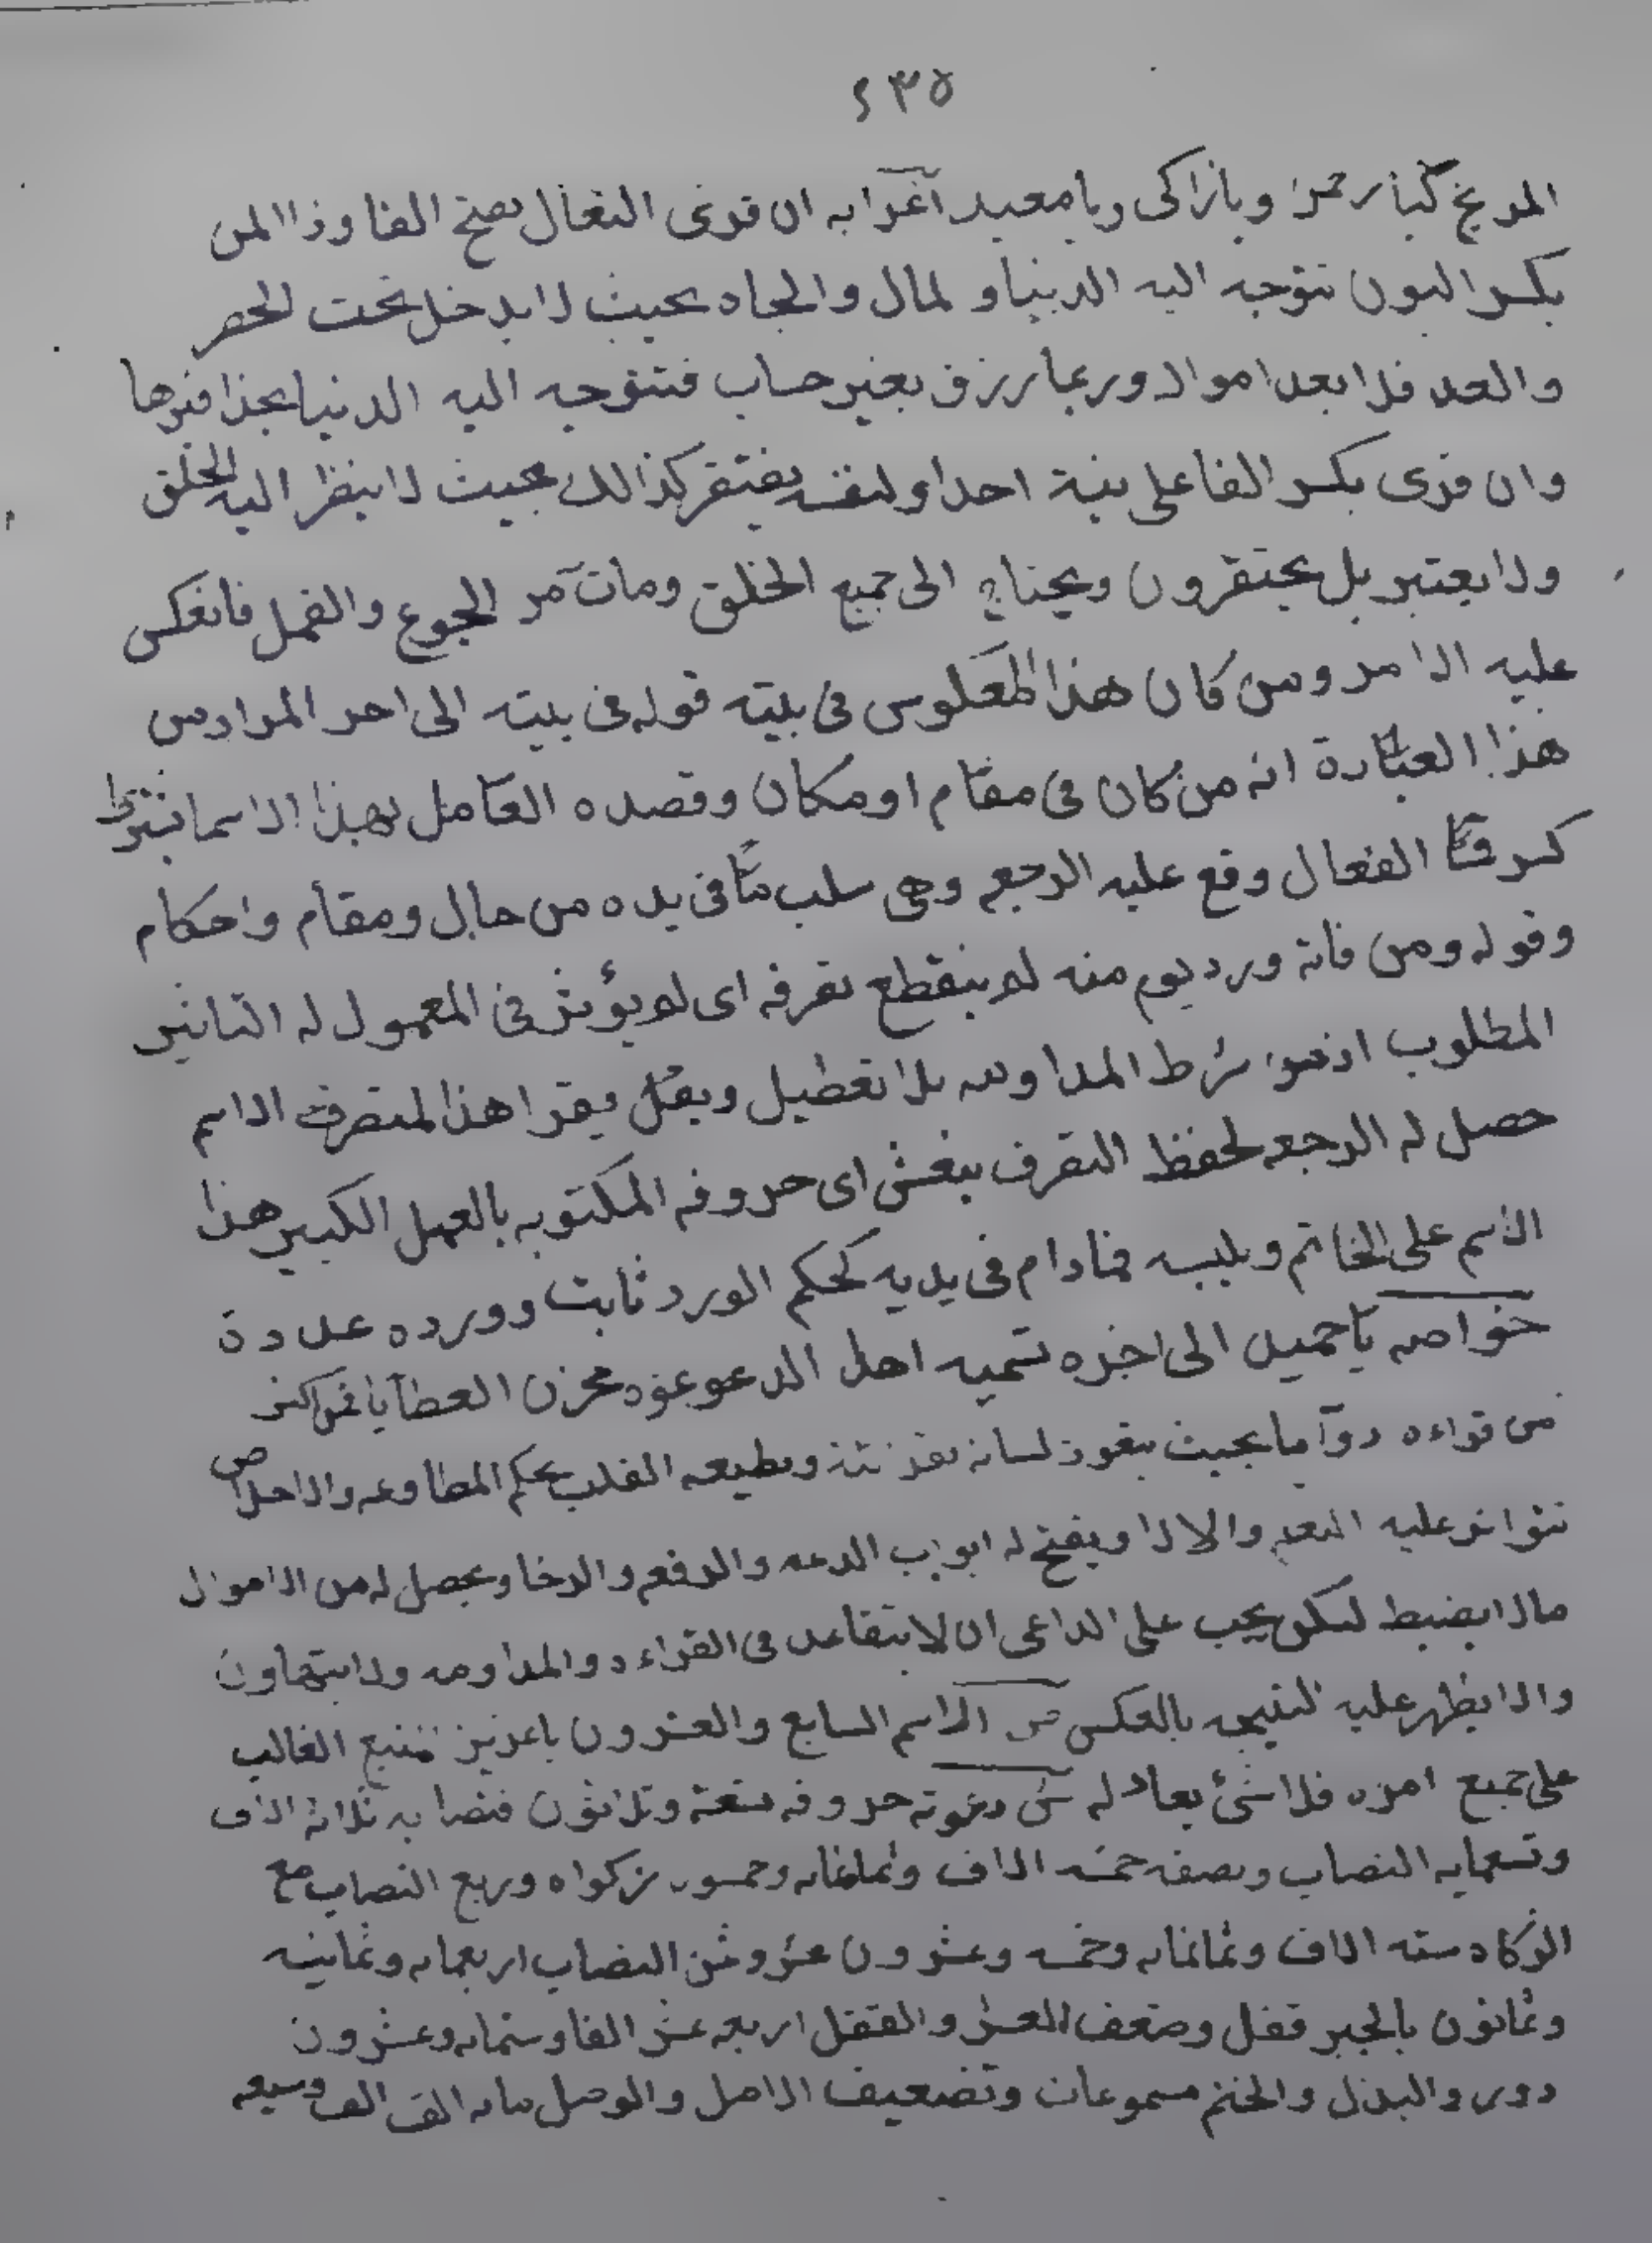 ٢٣٥
المريخ كيا رحمن ويا زاكى ويا معيد آغرابه ان قرى الفعال بفتح الفا وذا المن
بكسر النون تتوجه اليه الدنيا و لمال والجاه بحيث لا يدخل تحت الحصر
والعد فلا بعد اموالا وربما يرزق بغير حساب فتتوجه اليه الدنيا بحذافيرها
وان قرى بكسر الفا على نية احدا ولنفسه يفتقر كذالك بحيث لا ينظر اليه الخلق
ولا يعتبر بل يحتقرون ويحتاج الى جميع الخلق ومات من الجوع والقمل فانعكس
عليه الامر ومن كان هذا المعكوس فى بيته قوله فى بيته الى احر المراد من
هذا العبارة انه من كان فى مقام او مكان وقصده العامل بهذا الاسما بشرط
كسر فا الفعال وقع عليه الرجعه وهى سلب ما فى يده من حال ومقام واحكام
وقوله ومن فاته ورد يوم منه لم ينقطع تصرفه اى لم يؤثر فى المعمول له التاثير
المطلوب اذ هو شرط المداومه بلا تعطيل ويقل يقرا هذا لمتصرف الاسم
حصل له الرجعه لحفظ التصرف ينقش اى حروفه المكتوبه بالعمل الكبير هذا
الاسم على الخاتم ويلبسه فمادام فى يديه كحكم الورد ثابت وورده عدده
خواصه يا جميل الى اخره تسميه اهل الدعوه مخزن العطايا فمن اكثر
من قراءه دوآما بحيث يتعود لسانه بقرئته ويطيعه القلب بحكم المطاوعه والاخلاص
تتواتر عليه النعم والالا ويفتح له ابواب الدعه والرفعه والرخا ويحصل له من الاموال
مالا يضبط لكن يجب على الداعى ان لا يتقاعد فى القراءه والمداومه ولا يتهاون
والا يظهر عليه النتيجه بالعكس ص الاسم السابع والعشرون يا عزيز المنيع الغالب
على جميع امره فلا شئ يعادله ش دعوته حروفه تسعة وثلاثون فنصابه ثلاثة الاف
وتسعمايه النصاب ونصفه خمسه الاف وثمانمايه وخمسون زكواه وربع النصاب مع
الزكاه سته الاف وثمانمايه وخمسه وعشرون عشر وثمن النصاب اربعمايه وثمانيه
وثمانون بالجبر قفل وضعف العشر والقفل اربعه عشر الفا وستمايه وعشرون
دور والبذل والختم مسموعات وتضعيف الاصل والوصل مايه الف الف وسبعه